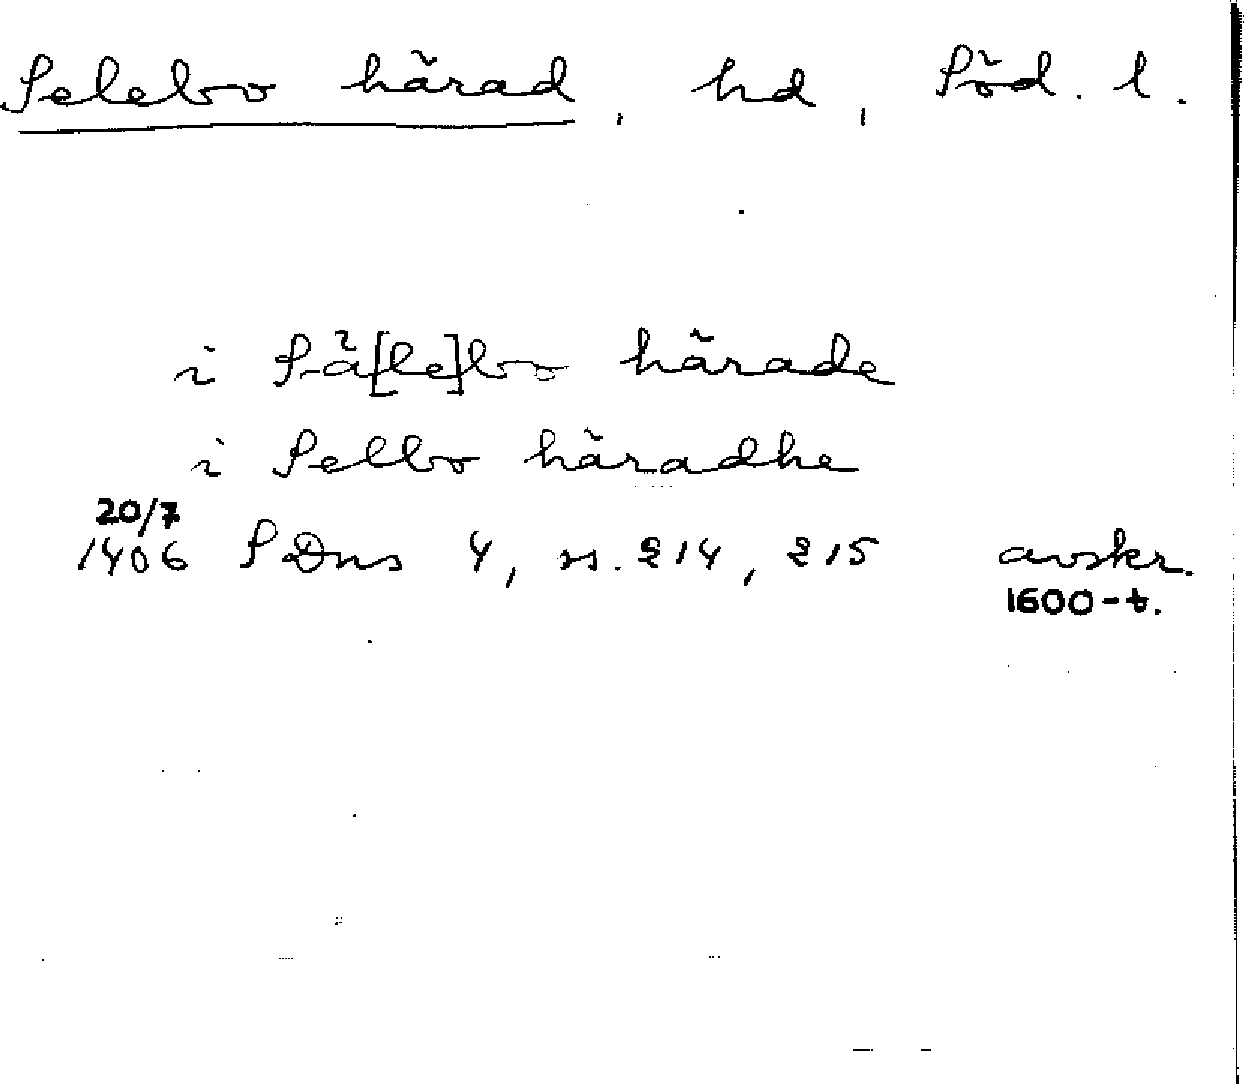 Selebo härad, hd, Söd. l.
i Sä[le]bo härade
i Selbo häradhe
20/7
1406 SDns 4, s. 214, 215 avskr.
1600-t.